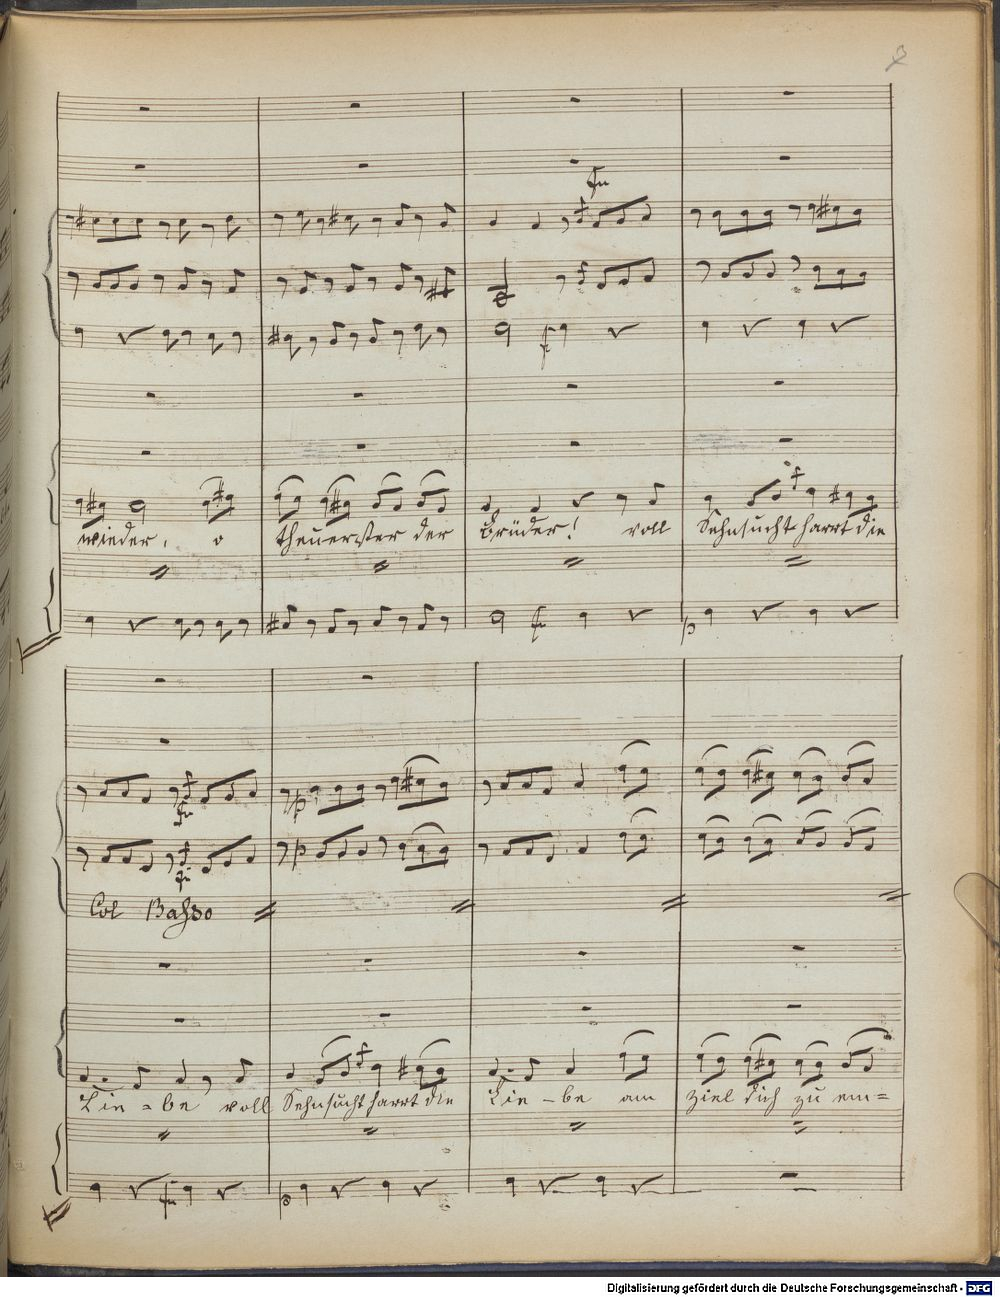 fn
wieder, o theuerster der Brüder! voll Sehnsucht harrt die
fn
p
fn
p
fn
Col Basso
Lie-be voll Sehnsucht harrt die Lie-be am Ziel dich zu em=
fn
p
Digitalisierung gefördert durch die Deutsche Forschungsgemeinschaft - DFG